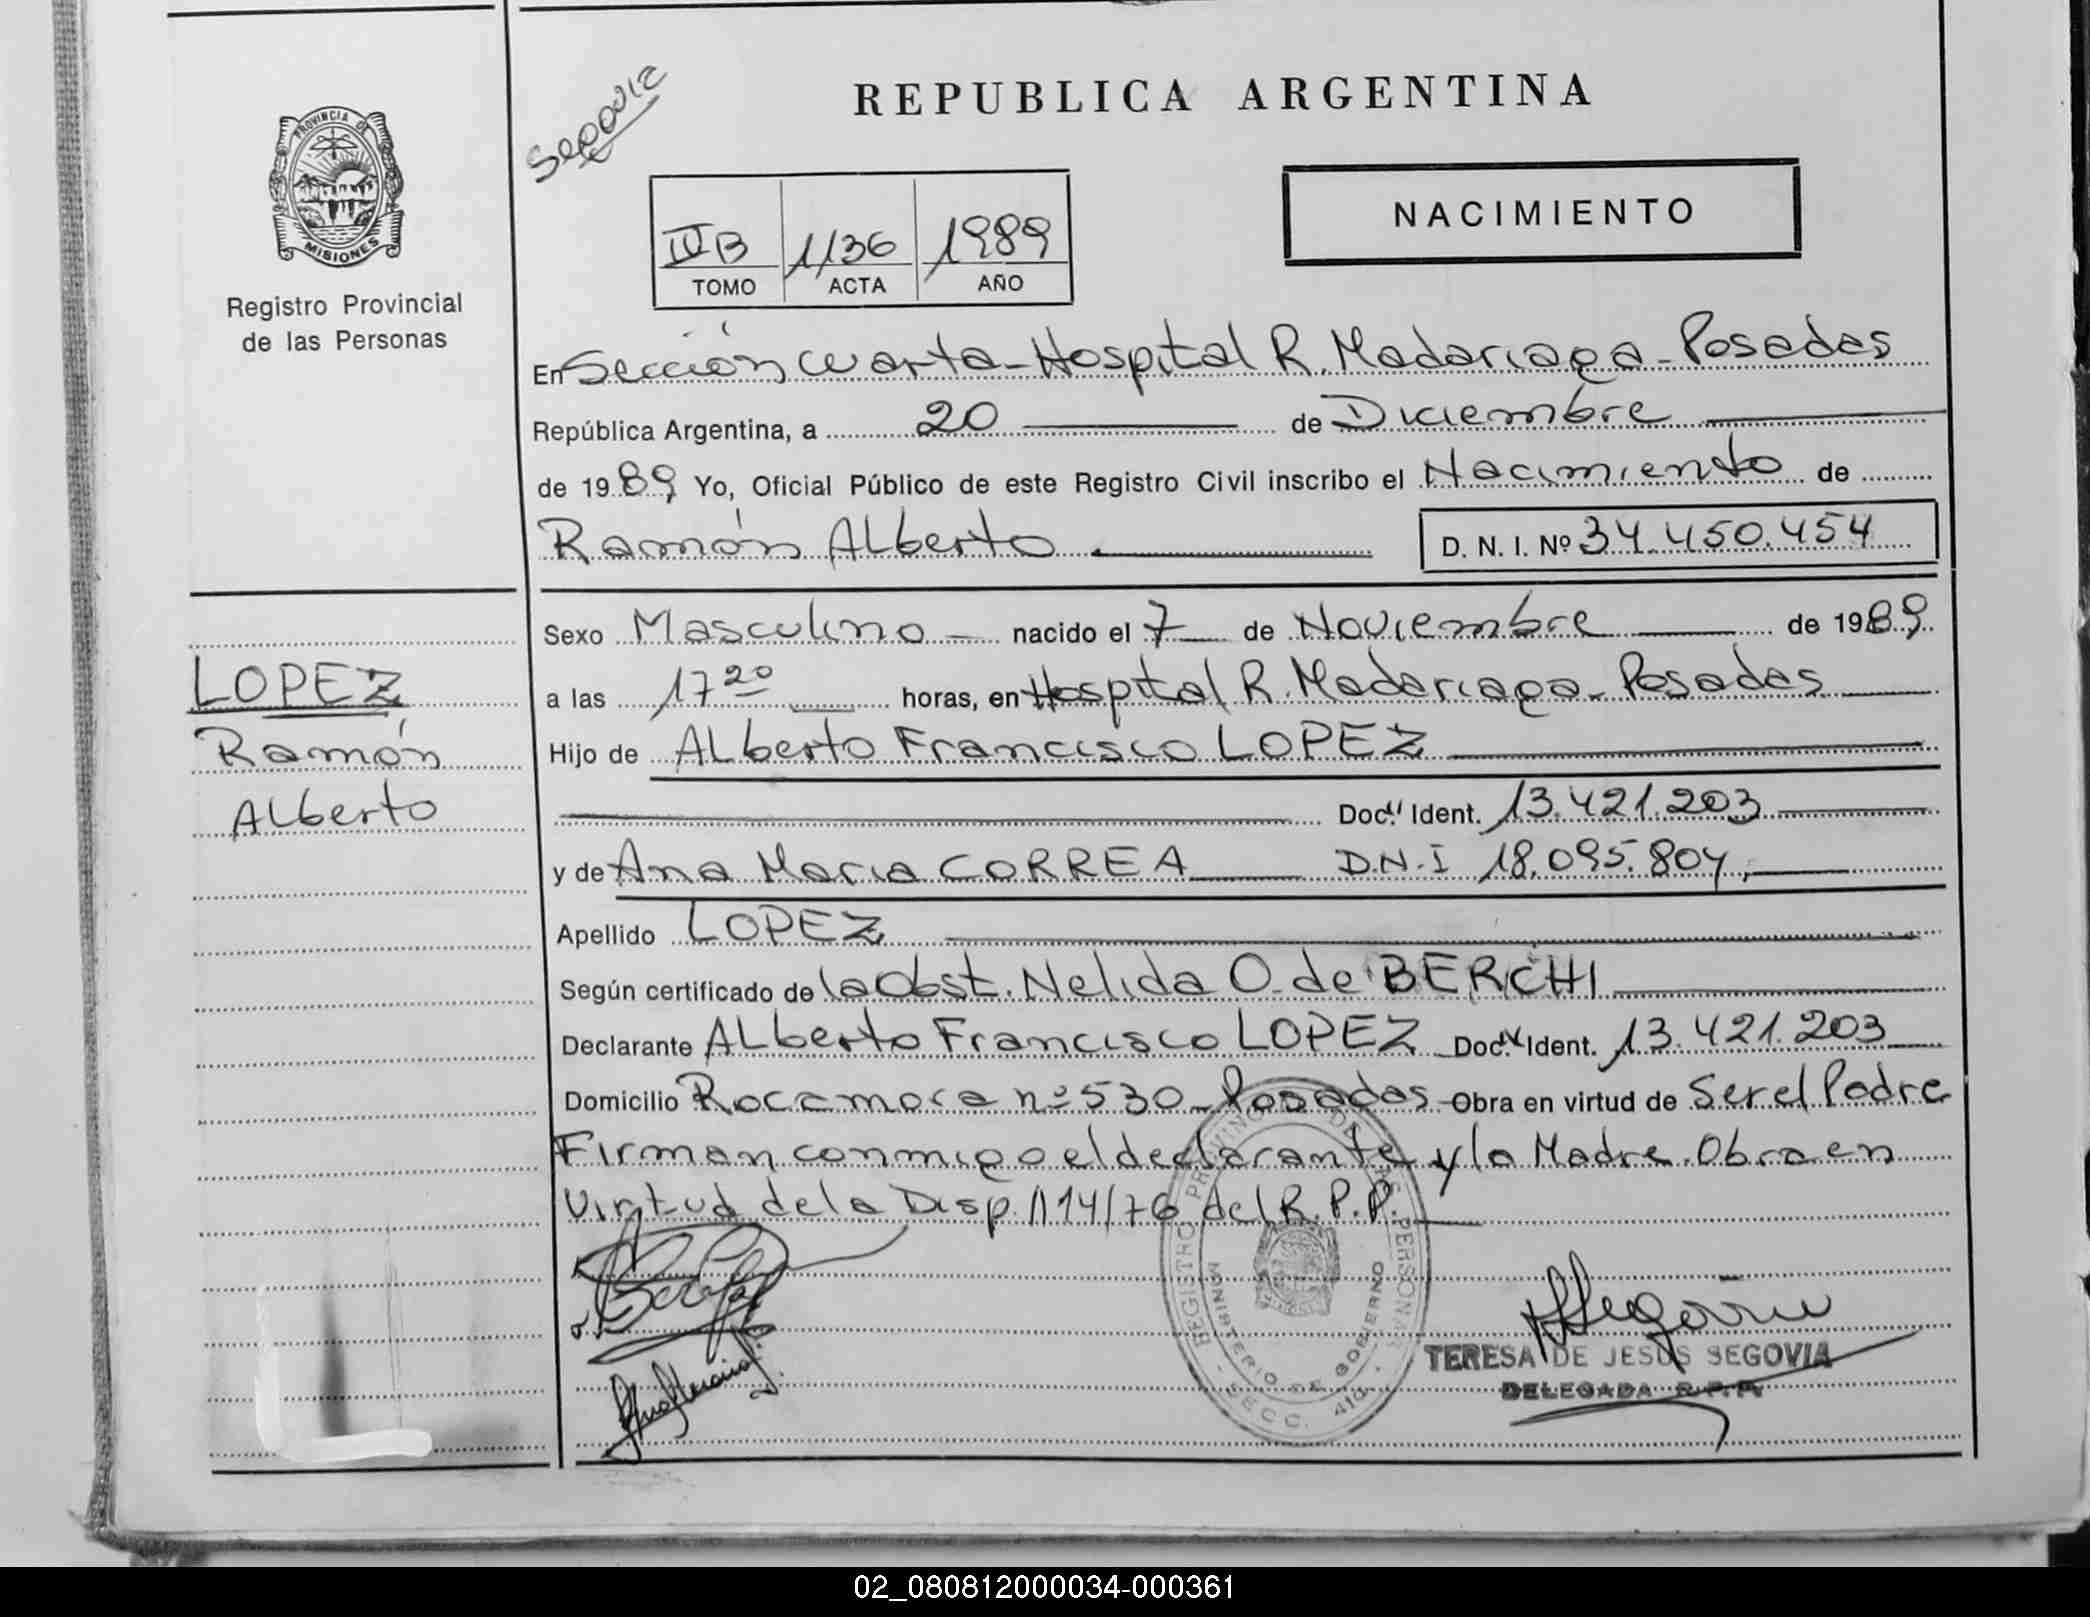 REPUBLICA ARGENTINA
Segovia
PROVINCIA DE
MISIONES
Registro Provincial
de las Personas
NACIMIENTO
IV B 1136 1989
TOMO ACTA AÑO
En Sección cuarta - Hospital R. Madariaga - Posadas
República Argentina, a 20 de Diciembre
de 1989 Yo, Oficial Público de este Registro Civil inscribo el Nacimiento de
Ramón Alberto D. N. I. Nº 34.450.454
Sexo Masculino nacido el 7 de Noviembre de 1989
LOPEZ
Ramón
Alberto
a las 17 20 horas, en Hospital R. Madariaga - Posadas
Hijo de Alberto Francisco LOPEZ
Doc. Ident. 13.421.203
y de Ana Maria CORREA D.N.I 18.095.804
Apellido LOPEZ
Según certificado de la Obst. Nelida O. de BERCHI
Declarante Alberto Francisco LOPEZ Doc. Ident. 13.421.203
Domicilio Rocamora nº 530 - Posadas Obra en virtud de Ser el Padre
Firman conmigo el declarante y la Madre. Obra en
Virtud de la Disp. 114/76 del R.P.P.
REGISTRO PROVINCIAL DE LAS PERSONAS
MINISTERIO DE GOBIERNO
SECC. 4ta
Segovia
TERESA DE JESUS SEGOVIA
DELEGADA R.P.P.
02_080812000034-000361